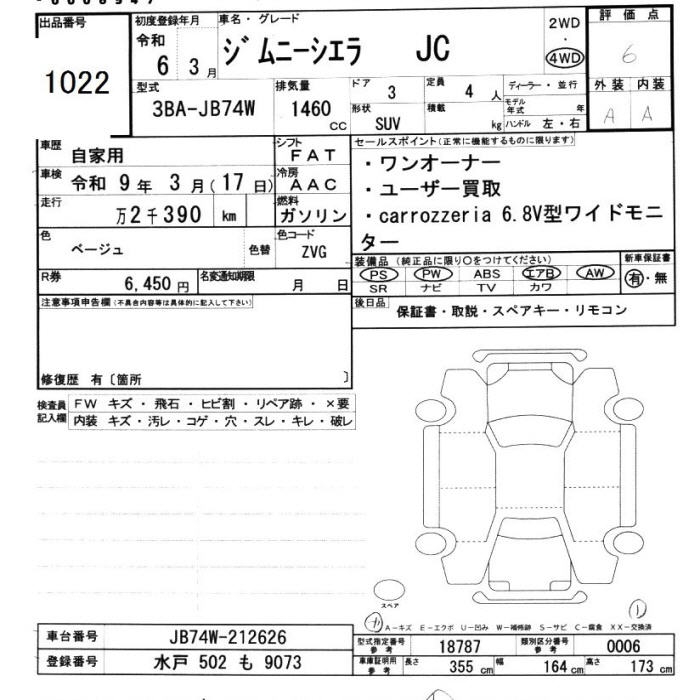 出品番号 1022
初度登録年月 令和 6 3 月
車名・グレード ジムニーシエラ JC
2WD
・
4WD
評価点 6
外装 内装
A A
型式 3BA-JB74W
排気量 1460 CC
ドア 3 定員 4 人
形状 SUV 積載 kg
ディーラー・並行
モデル年式 年
ハンドル 左・右
車歴 自家用
シフト FAT
車検 令和 9 年 3 月(17 日)
冷房 AAC
走行 万2千390 km
燃料 ガソリン
色 ベージュ 色替
色コード ZVG
R券 6,450 円
名変通知期限 月 日
セールスポイント(正常に機能するものに限ります)
・ワンオーナー
・ユーザー買取
・carrozzeria 6.8V型ワイドモニ
ター
装備品(純正品に限り○をつけてください) 新車保証書
PS PW ABS エアB AW 有・無
SR ナビ TV カワ
後日品 保証書・取説・スペアキー・リモコン
注意事項申告欄(不具合内容等は具体的に記入して下さい)
修復歴 有〔箇所 〕
検査員記入欄
FW キズ・飛石・ヒビ割・リペア跡・×要
内装 キズ・汚レ・コゲ・穴・スレ・キレ・破レ
スペア
A-キズ E-エクボ U-凹み W-補修跡 S-サビ C-腐食 XX-交換済
車台番号 JB74W-212626
登録番号 水戸 502 も 9073
型式指定番号 参考 18787 類別区分番号 参考 0006
車庫証明用 参考 長さ 355 cm 幅 164 cm 高さ 173 cm